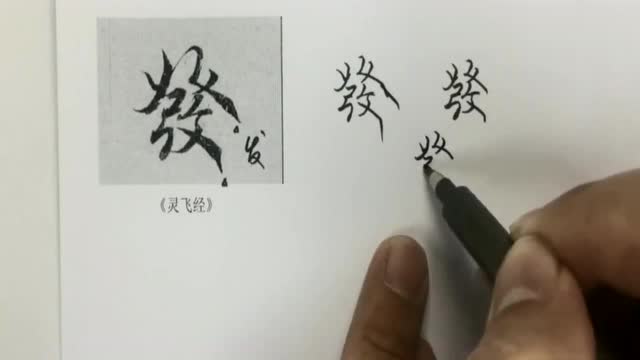 發 發 發
发
《灵飞经》